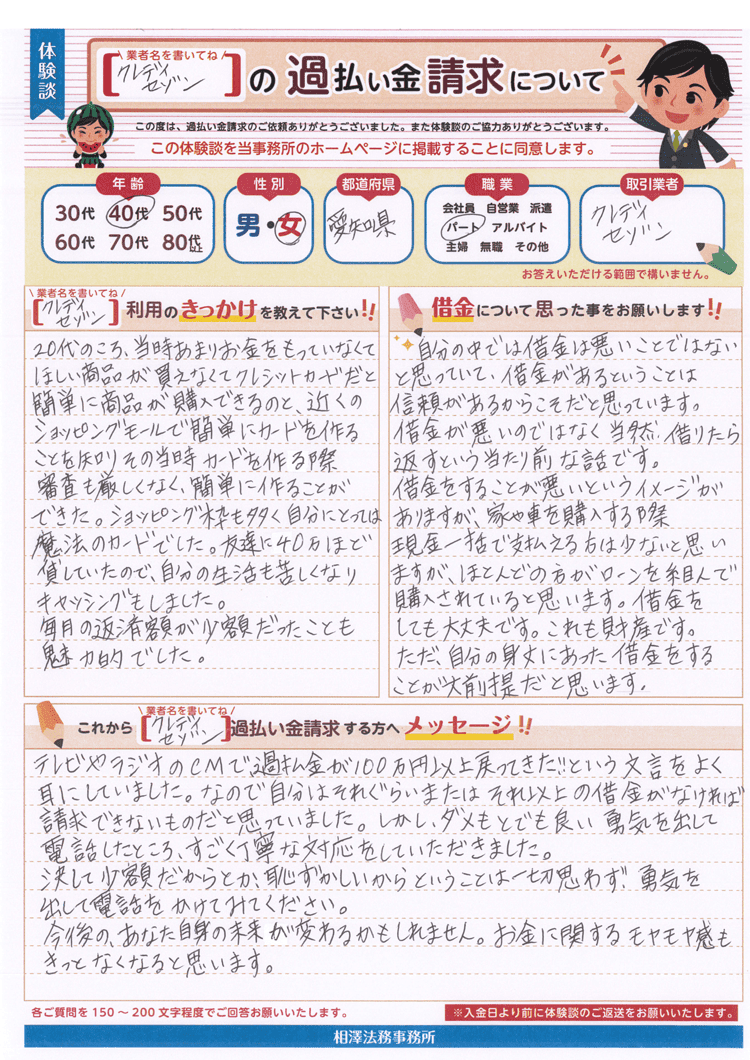 体験談
業者名を書いてね
[クレディセゾン]の過払い金請求について
この度は、過払い金請求のご依頼ありがとうございました。また体験談のご協力ありがとうございます。
この体験談を当事務所のホームページに掲載することに同意します。
年齢
30代 40代 50代
60代 70代 80代以上
性別
男・女
都道府県
愛知県
職業
会社員 自営業 派遣
パート アルバイト
主婦 無職 その他
取引業者
クレディ
セゾン
お答えいただける範囲で構いません。
業者名を書いてね
[クレディセゾン]利用のきっかけを教えて下さい!!
20代のころ、当時あまりお金をもっていなくて
ほしい商品が買えなくてクレジットカードだと
簡単に商品が購入できるのと、近くの
ショッピングモールで簡単にカードを作る
ことを知りその当時カードを作る際
審査も厳しくなく、簡単に作ることが
できた。ショッピング枠も多く自分にとっては
魔法のカードでした。友達に40万ほど
貸していたので、自分の生活も苦しくなり
キャッシングもしました。
毎月の返済額が少額だったことも
魅力的でした。
借金について思った事をお願いします!!
自分の中では借金は悪いことではない
と思っていて、借金があるということは
信頼があるからこそだと思っています。
借金が悪いのではなく当然、借りたら
返すという当たり前な話です。
借金をすることが悪いというイメージが
ありますが、家や車を購入する際
現金一括で支払える方は少ないと思い
ますが、ほとんどの方がローンを組んで
購入されていると思います。借金を
しても大丈夫です。これも財産です。
ただ、自分の身丈にあった借金をする
ことが大前提だと思います。
業者名を書いてね
これから[クレディセゾン]過払い金請求する方へメッセージ!!
テレビやラジオのCMで過払金が100万円以上戻ってきた!!という文言をよく
耳にしていました。なので自分はそれぐらいまたはそれ以上の借金がなければ
請求できないものだと思っていました。しかし、ダメもとでも良い勇気を出して
電話したところ、すごく丁寧な対応をしていただきました。
決して少額だからとか、恥ずかしいからということは一切思わず、勇気を
出して電話をかけてみてください。
今後の、あなた自身の未来が変わるかもしれません。お金に関するモヤモヤ感も
きっとなくなると思います。
各ご質問を150～200文字程度でご回答お願いいたします。
※入金日より前に体験談のご返送をお願いいたします。
相澤法務事務所